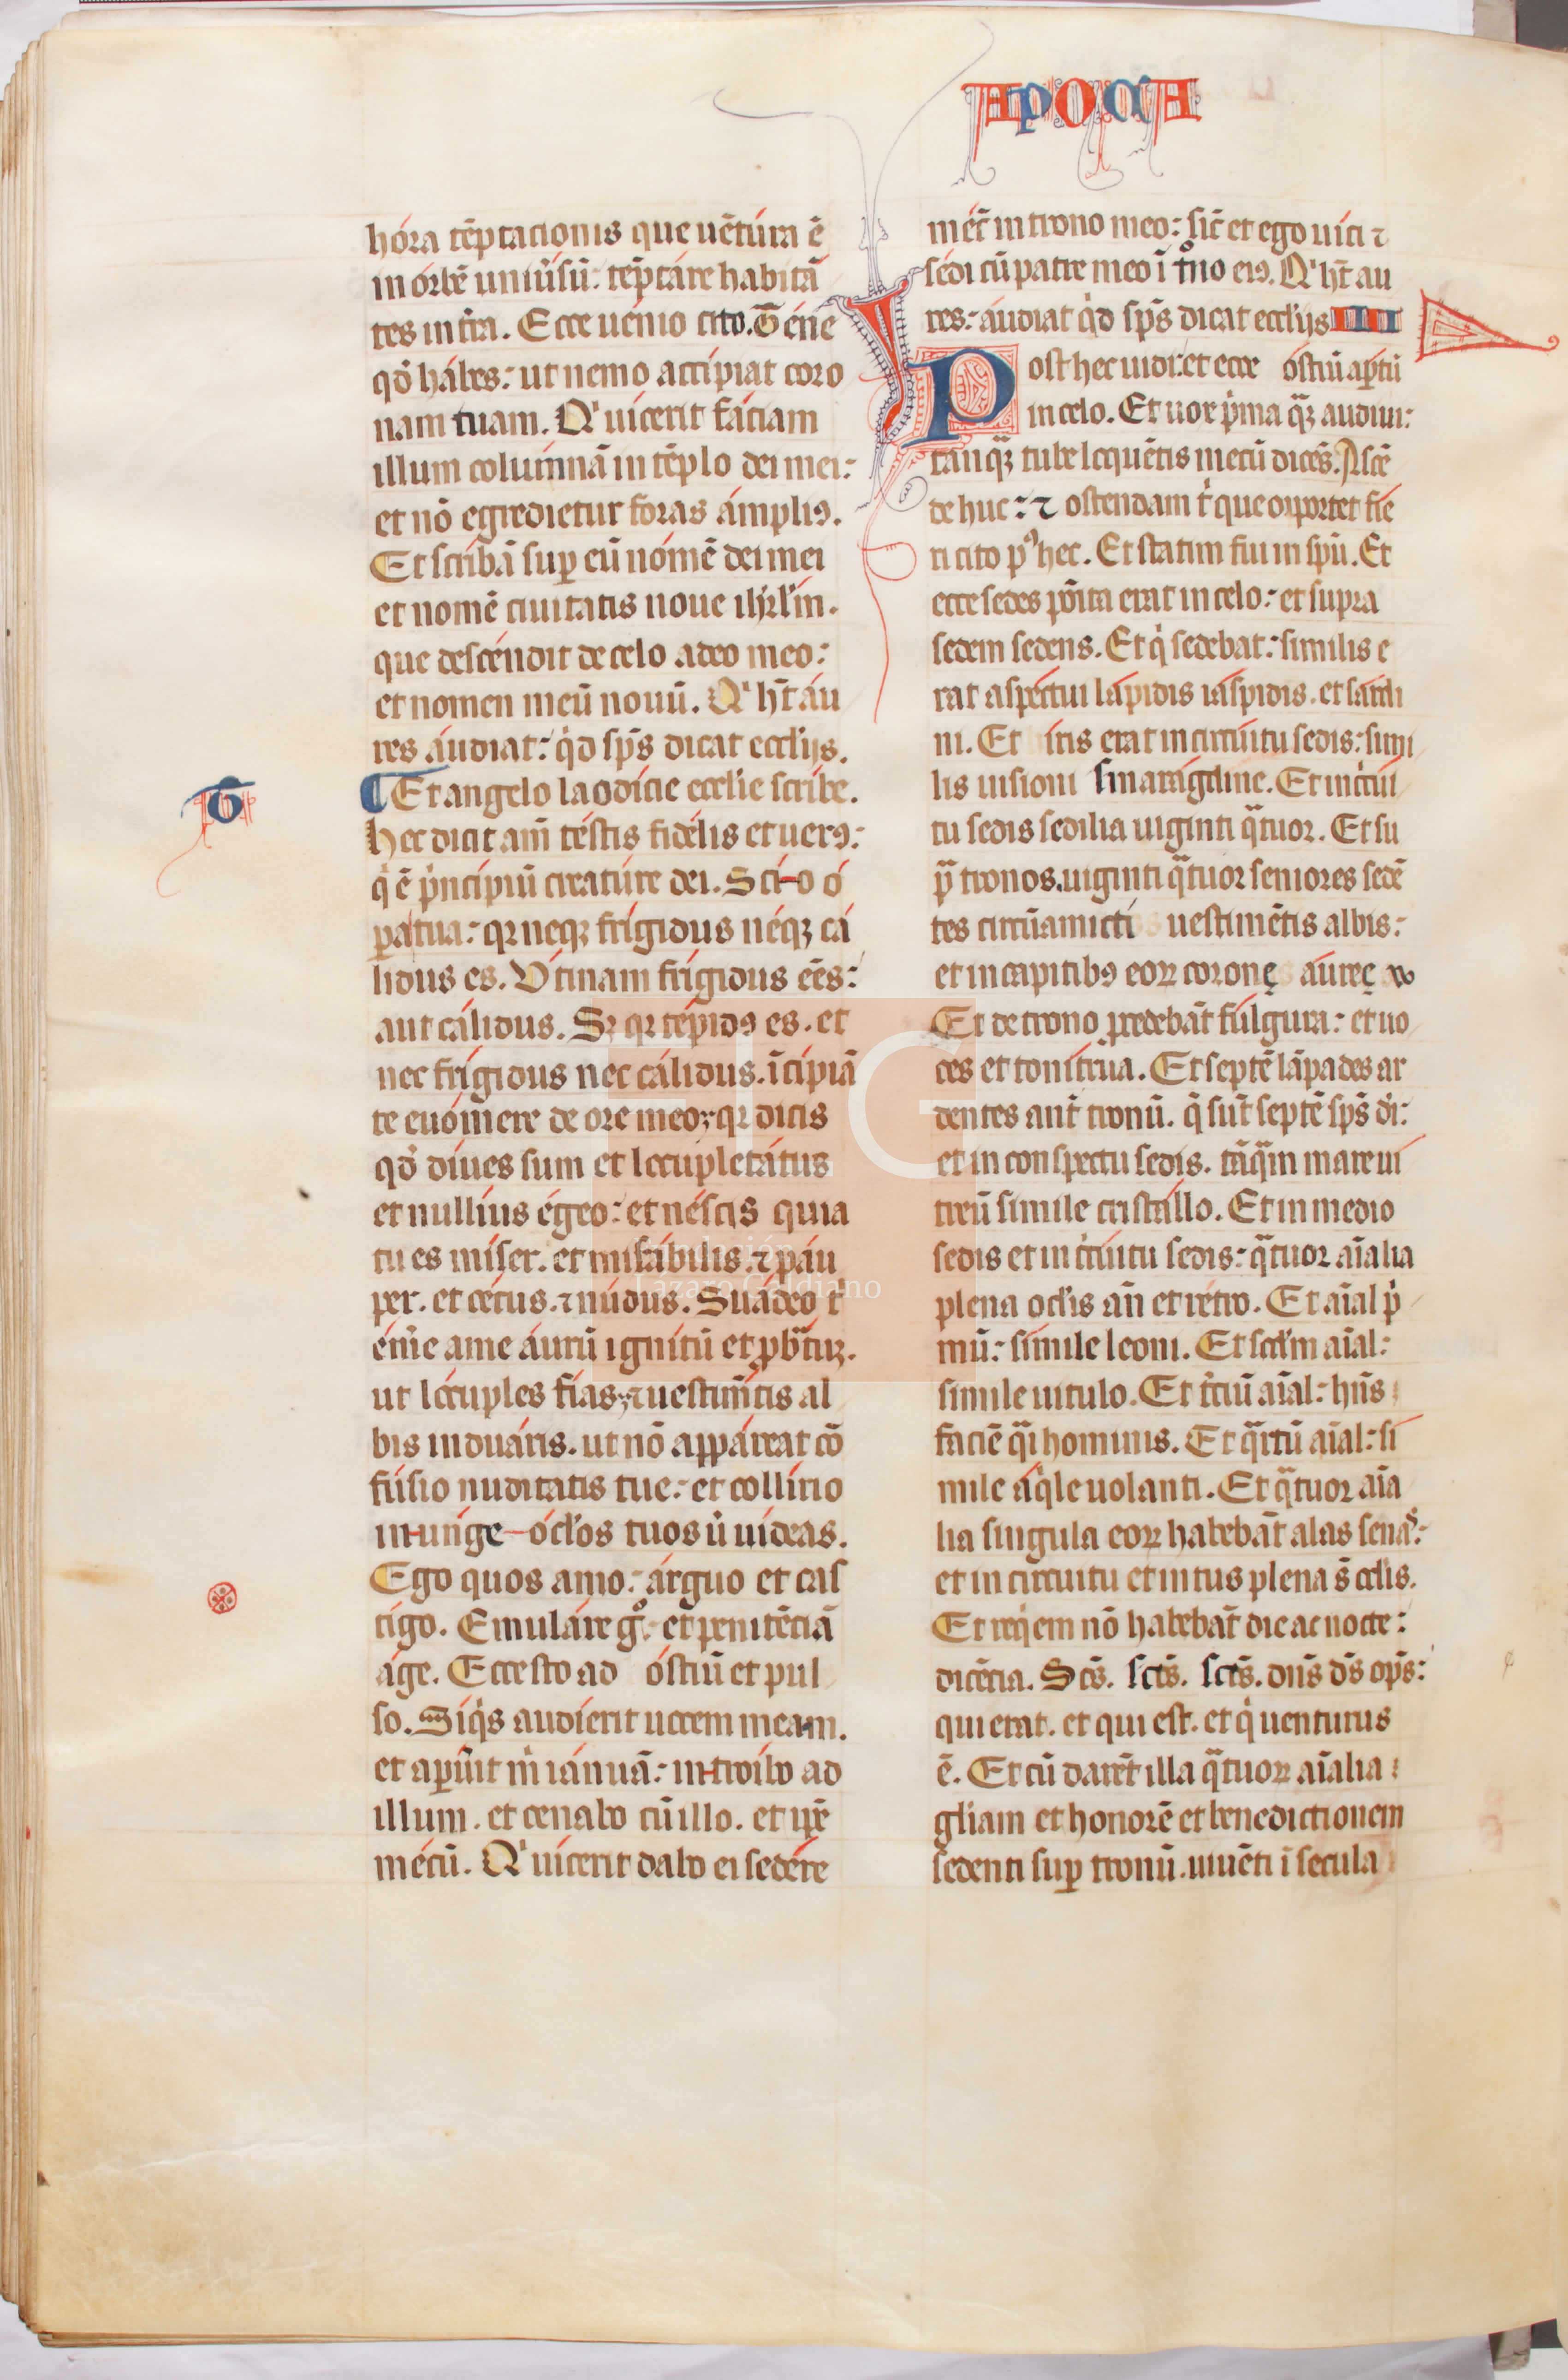 APOCA
hóra tẽptacionis que uẽtúra ẽ
in órbẽ uniũsũ: teptáre habitã
tes in t̃ra. Ecce uénio cito. Téne
qđ hábes: ut nemo accípiat coro
nam tuam. Qͥ uícerit fáciam
illum columnã in tẽplo dei mei:
et nõ egredietur foras ámpliꝰ.
Et scribã suꝑ eũ nómẽ dei mei
et nomẽ ciuitatis noue ihrl̃m.
que descéndit de celo a deo meo:
et nomen meũ nouũ. Qͥ ht̃ áu
res áudiat: qͥd sp̃s dicat eccl̃ijs.
Et angelo laodície eccl̃ie scribe.
T
hec dicit am̃ téstis fidélis et uerꝰ:
qͥ ẽ pͥncipiũ creatúre dei. Scío ó
ꝑa tua: qꝛ neqꝫ frígidus néqꝫ cá
lidus es. Vtinam frígidus eẽs:
aut cálidus. Sꝫ qꝛ tépidꝰ es. et
nec frígidus nec cálidus. ĩcípiã
te euómere de ore meo: qꝛ dicis
qđ díues sum et locupletátus
et nullíus égeo: et néscis quia
tu es míser. et misẽábilis. ⁊ páu
per. et cecus. ⁊ núdus. Suádeo tͥ
émẽ a me áurũ ignítũ et ꝓbãtũ.
ut lócuples fías: ⁊ uestim̃tis al
bis induáris. ut nõ appáreat cõ
fúsio nuditatis tue: et collírio
inúnge ócl̃os tuos ũ uídeas.
Ego quos amo: árguo et cas
tígo. Emuláre gͦ: et penitẽciã
áge. Ecce sto ad óstiũ et pul
so. Si qͥs audíerit uocem meam.
et apũit mͥ iánuã: introíbo ad
illum. et cenabo cũ illo. et ip̃e
mécũ. Qͥ uícerit dabo ei sedére
mécũ in trono meo: sic̃ et ego uíci ⁊
sédi cũ patre meo ĩ tͦno eiꝰ. Qͥ ht̃ au
res: áudiat qͥd sp̃s dicat eccl̃ijs IIII
Post hec uidi: et ecce óstiũ aꝑtũ
in celo. Et uox pͥma quã audiui:
tanqꝫ tube loquẽtis mecũ dicẽs. Ascẽ
de huc: ⁊ ostendam tͥ que oportet fíe
ri cito pͦ hec. Et statim fui in spũ. Et
ecce sedes pósita erat in celo: et supra
sedem sedens. Et qͥ sedebat: similis e
rat aspéctui lápidis iáspidis. et sárdi
ni. Et íris erat in circúitu sedis: simi
lis uisioni smarágdine. Et in circui
tu sedis sedilia uiginti qᷓtuor. Et su
pᷓ tronos uiginti qᷓtuor seniores sedẽ
tes circũamicti uestimẽtis albis:
et in capitibꝰ eoꝝ coronę áureę
Et de trono ꝓcedebãt fúlgura: et uo
ces et tonítrua. Et septẽ lãpades ar
dentes ant̃ tronũ. q̃ sũt septẽ sp̃s di:
et in conspectu sedis. tãqᷓm mare ui
treũ simile cristállo. Et in medio
sedis et in cͥrcuitu sedis: qᷓtuor aĩalia
plena ocl̃is añ et rétro. Et aĩal pͥ
mũ: símile leoni. Et scd̃m aĩal:
simile uitulo. Et tͥciũ aĩal: hñs
faciẽ qᷓi hominis. Et qᷓrtũ aĩal: si
mile áqͥle uolanti. Et qᷓtuor aĩa
lia singula eoꝝ habebãt alas senas:
et in circuitu et intus plena s̃ ocl̃is.
Et reqͥem nõ habebãt die ac nocte:
dicẽcia. Scs̃. scs̃. scs̃. dñs ds̃ op̃s:
qui erat. et qui est. et qͥ uenturus
ẽ. Et cũ darẽt illa qᷓtuor aĩalia
gl̃iam et honorẽ et benedictionem
sedenti suꝑ tronũ. uiuẽti ĩ secula
FLG
Fundación
Lázaro Galdiano